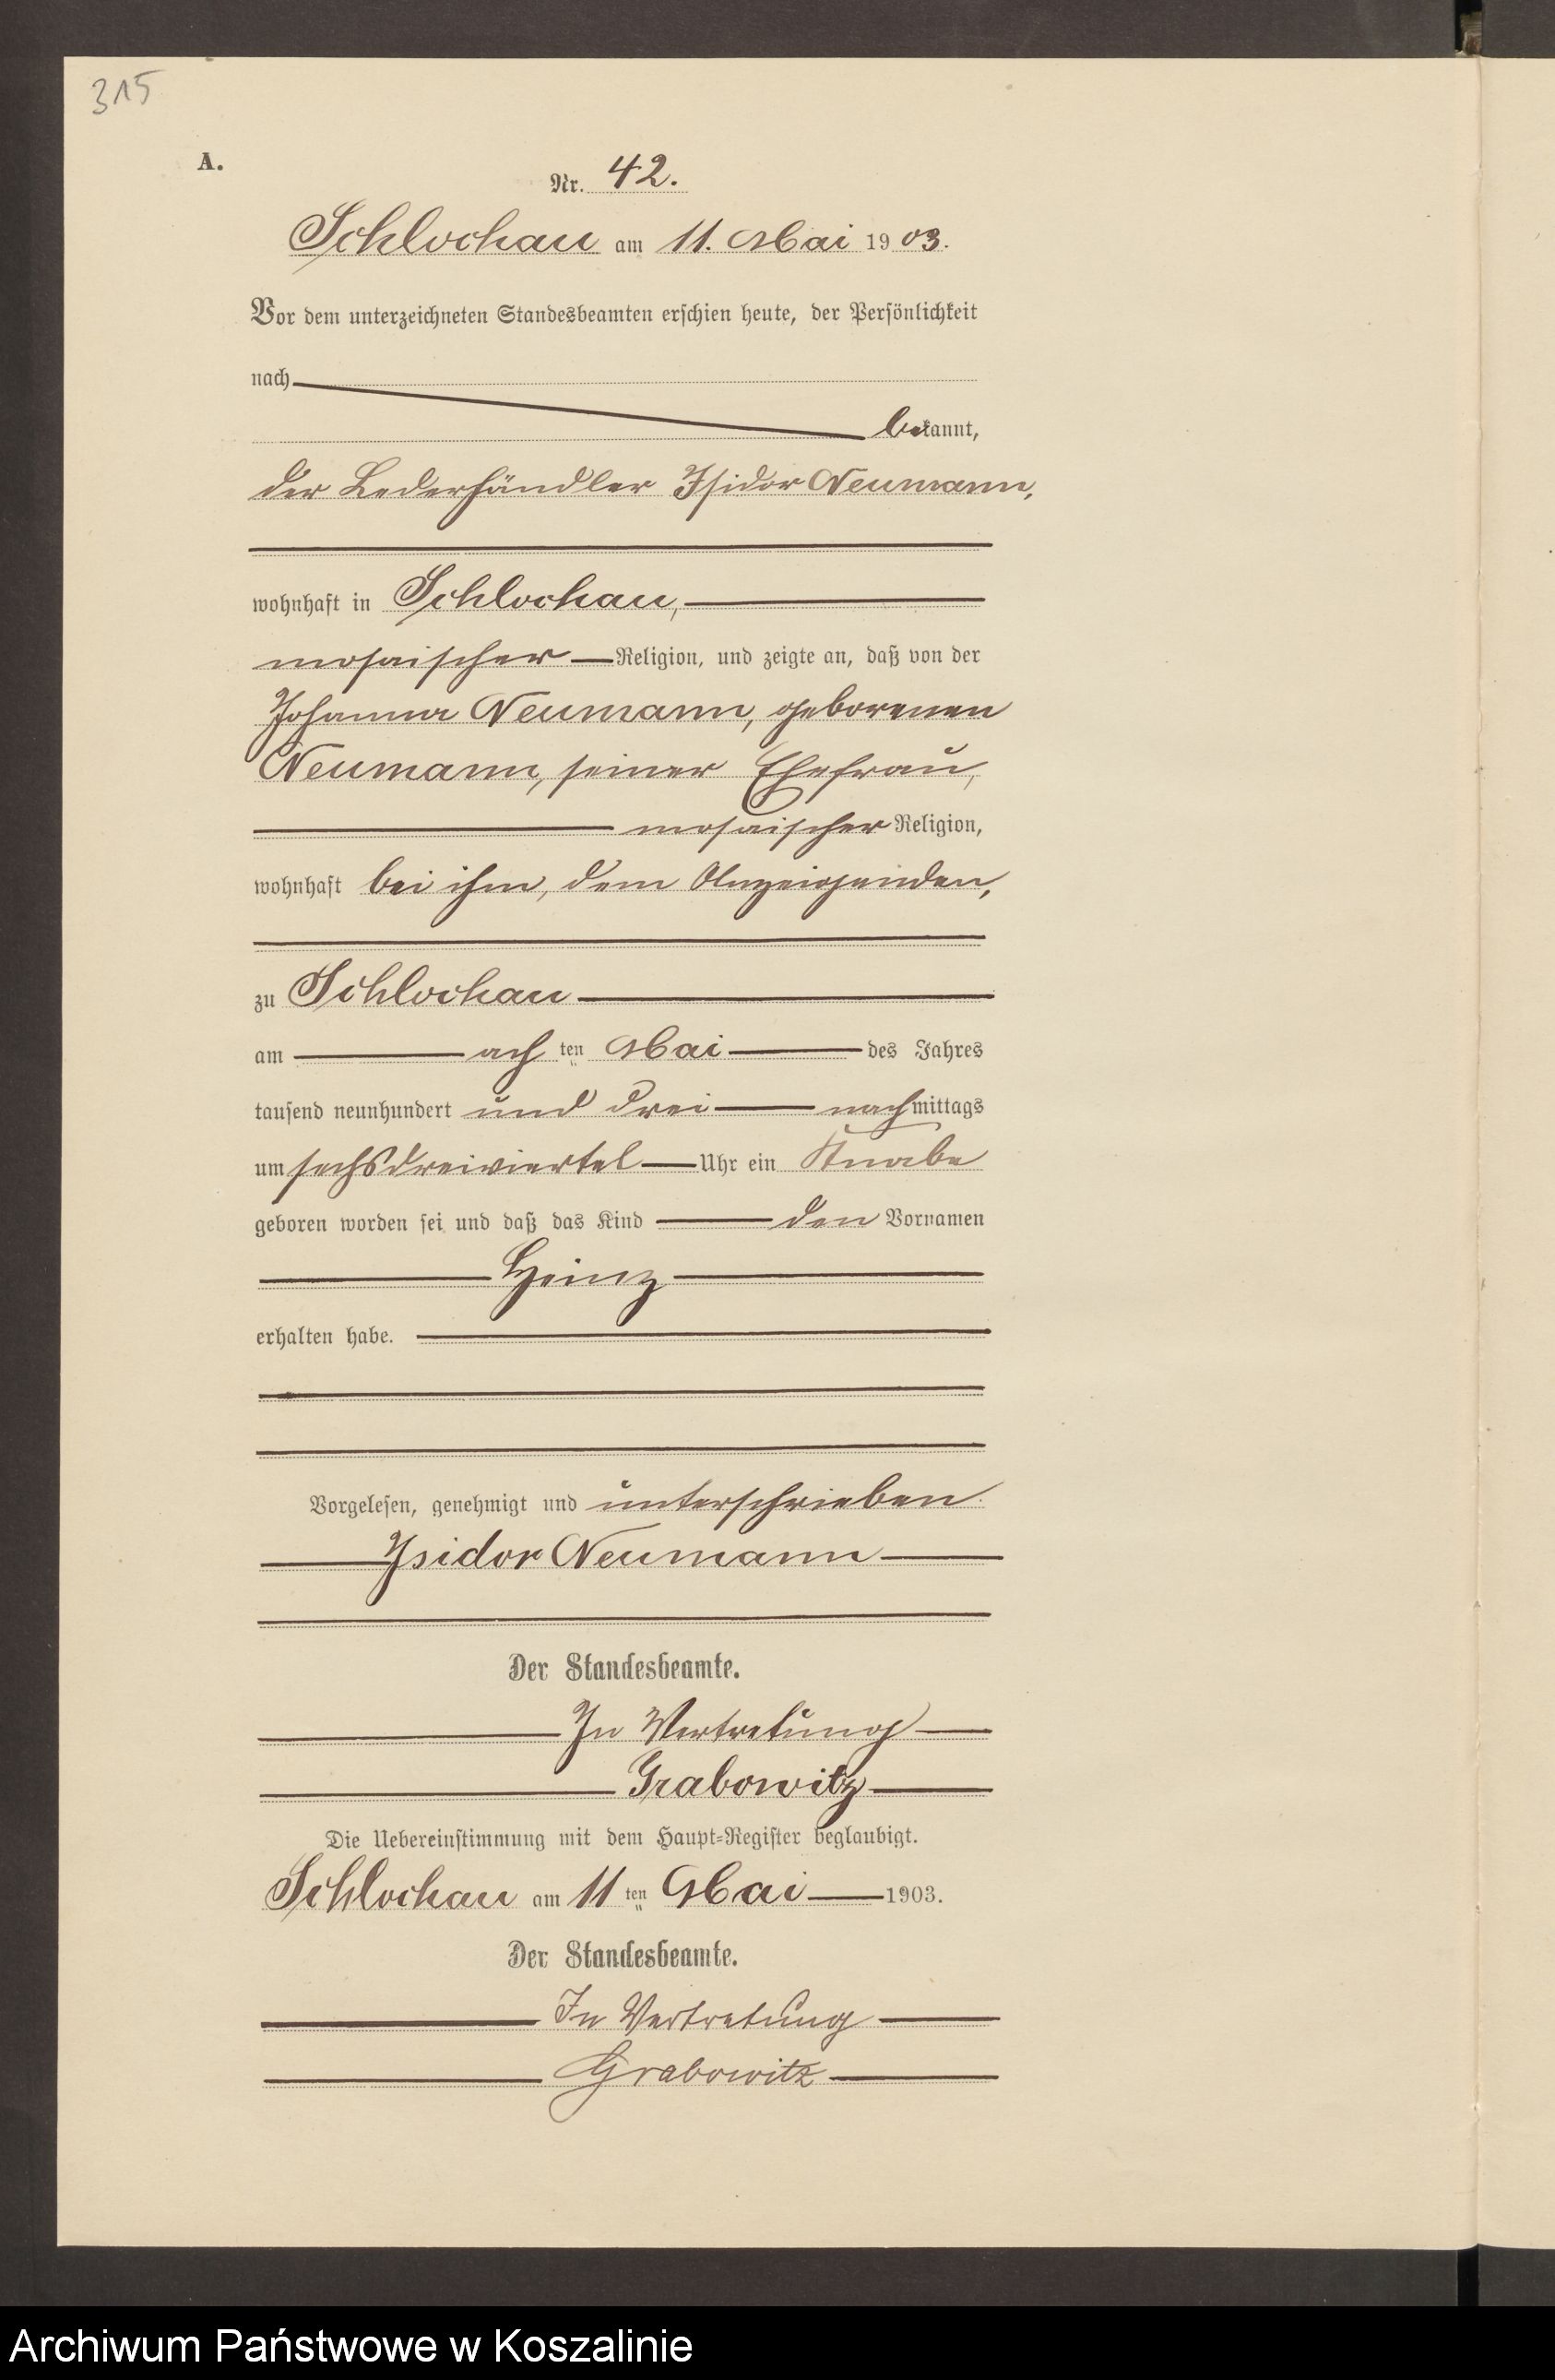 315
A.
Nr. 42.
Schlochau am 11. Mai 1903.
Vor dem unterzeichneten Standesbeamten erschien heute, der Persönlichkeit
nach
bekannt,
der Lederhändler Isidor Neumann,
wohnhaft in Schlochau,
mosaischer Religion, und zeigte an, daß von der
Johanna Neumann, geborenen
Neumann, seiner Ehefrau,
mosaischer Religion,
wohnhaft bei ihm, dem Anzeigenden,
zu Schlochau
am achten Mai des Jahres
tausend neunhundert und drei nachmittags
um sechsdreiviertel Uhr ein Knabe
geboren worden sei und daß das Kind den Vornamen
Heinz
erhalten habe.
Vorgelesen, genehmigt und unterschrieben.
Isidor Neumann
Der Standesbeamte.
In Vertretung
Grabowitz
Die Uebereinstimmung mit dem Haupt=Register beglaubigt.
Schlochau am 11ten Mai 1903.
Der Standesbeamte.
In Vertretung
Grabowitz
Archiwum Państwowe w Koszalinie